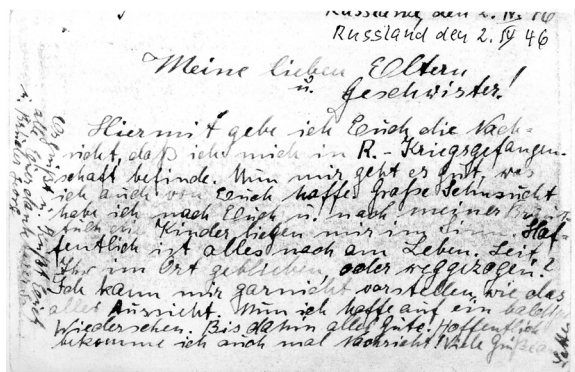 Russland den 2. IV 46
Russland den 2. IV 46
Meine lieben Eltern
u. Geschwister!
Hiermit gebe ich Euch die Nach-
richt, daß ich mich in R.-Kriegsgefangen-
schaft befinde. Nun mir geht es gut, was
ich auch von Euch hoffe. Große Sehnsucht
habe ich nach Euch u. nach meiner
Kinder liegen mir im Sinn. Hof-
fentlich ist alles noch am Leben. Seit
Ihr im Ort geblieben, oder weggezogen?
Ich kann mir garnicht vorstellen, wie das
alles Aussieht. Nun ich hoffe auf ein baldiges
Wiedersehen. Bis dahin alles Gute. Hoffentlich
bekomme ich auch mal Nachricht! Viele Grüße
Es grüßt u. küßt Euch
alle
u. Bruder